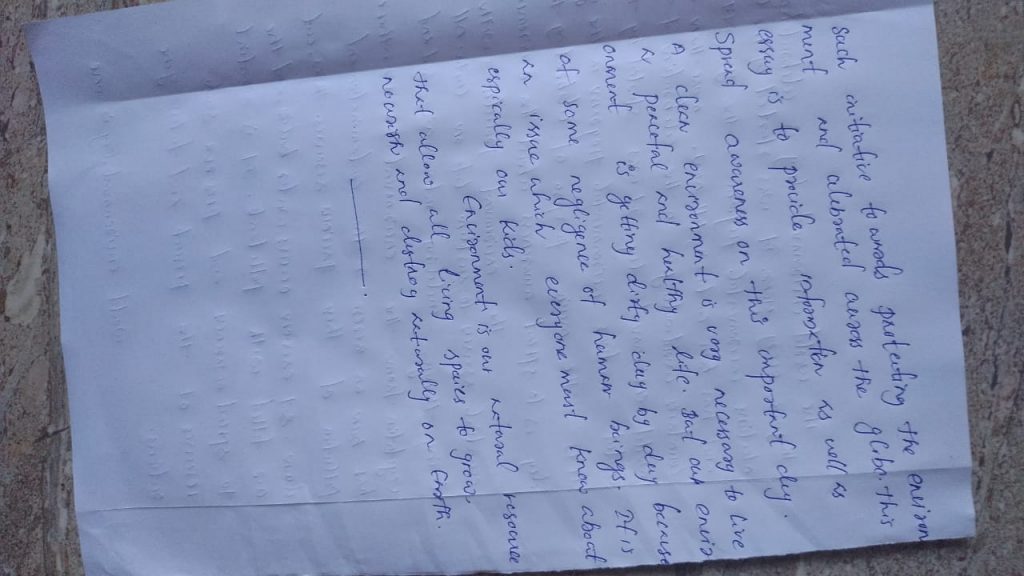 such initiative to wards protecting the environ
ment and alebrated across the globe. this
essay is to provide information as well as
Spread awareness on this important day.
A clean environment is very necessary to live
a peaceful and helthy life. But our envir
onment is getting dirty day by day because
of some negligence of human beings. It is
an issue which everyone must know about
espically our kids.
Environment is our natural resource
that allows all living spcies to grow,
nourish and destroy naturally on Earth.